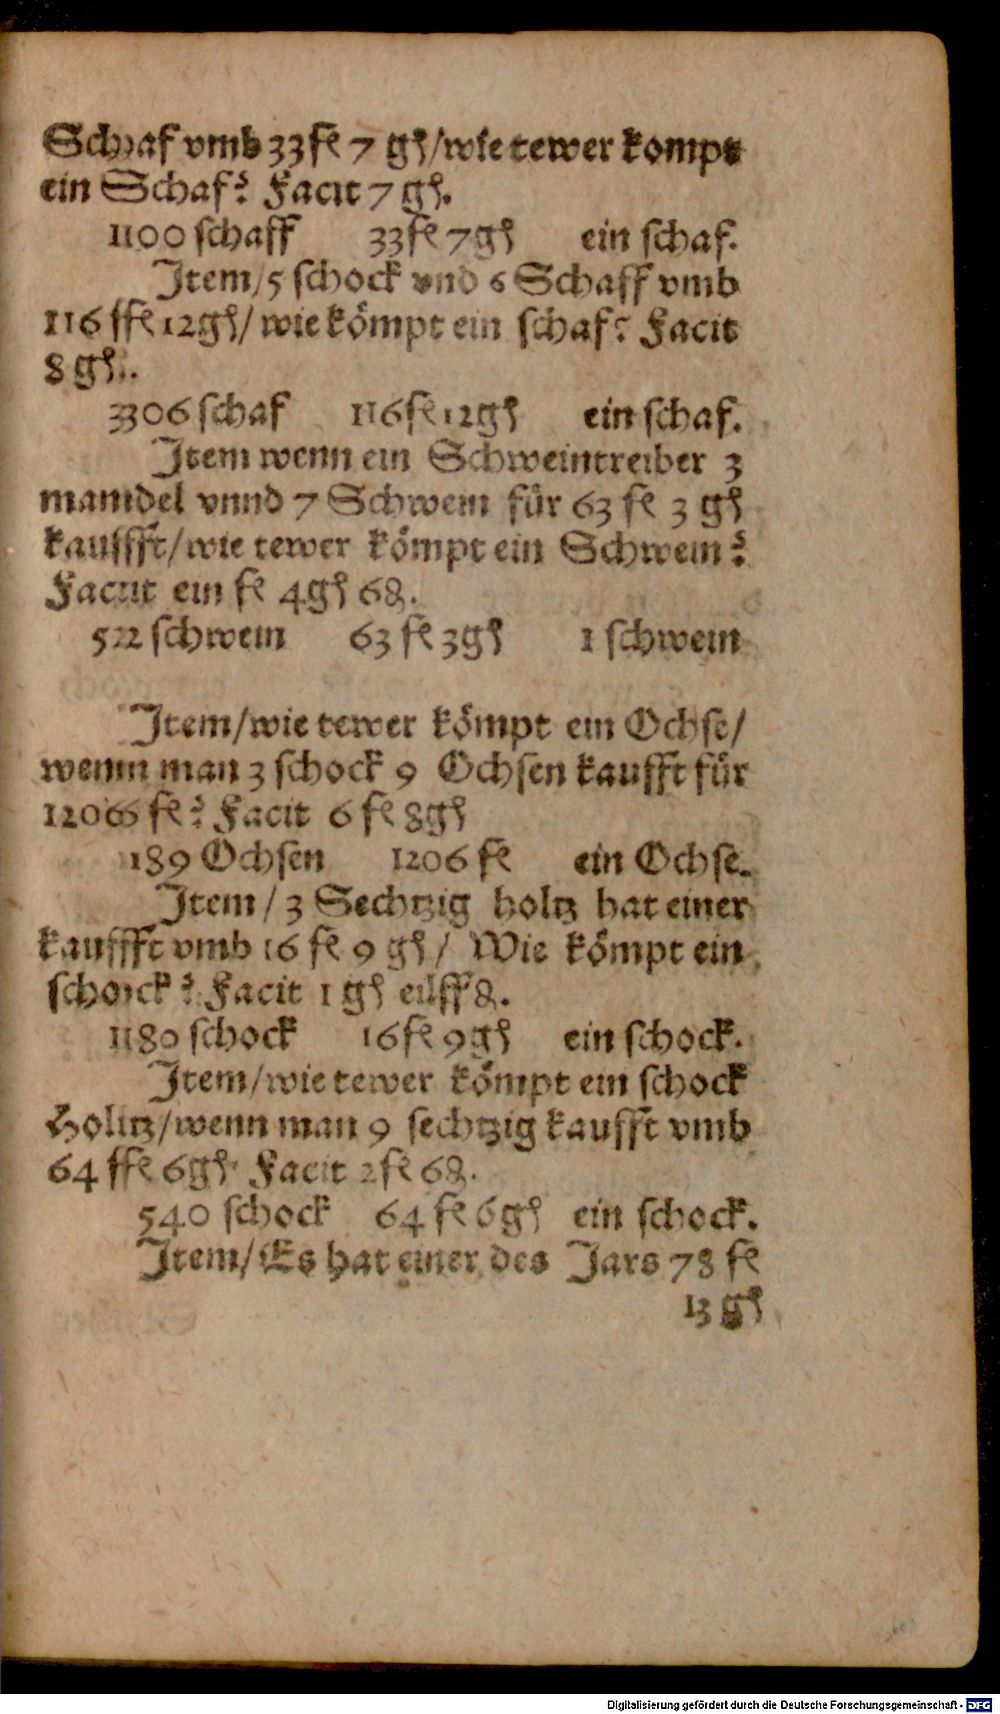 Schaf vmb 33 fl 7 gl/wie tewer kompt
ein Schaf? Facit 7 gl.
1100 schaff 33 fl 7 gl ein schaf.
Item/5 schock vnd 6 Schaff vmb
116 fl 12 gl/ wie kömpt ein schaf? Facit
8 gl.
3306 schaf 116 fl 12 gl ein schaf.
Item wenn ein Schweintreiber 3
mandel vnnd 7 Schwein für 63 fl 3 gl
kaufft/wie tewer kömpt ein Schwein?
Facit ein fl 4 gl 6 ₰.
522 schwein 63 fl 3 gl 1 schwein
Item/wie tewer kömpt ein Ochse/
wenn man 3 schock 9 Ochsen kaufft für
1206 fl? Facit 6 fl 8 gl
189 Ochsen 1206 fl ein Ochse.
Item/ 3 Sechtzig holtz hat einer
kaufft vmb 16 fl 9 gl/ Wie kömpt ein
schock? Facit 1 gl eilff ₰.
1180 schock 16 fl 9 gl ein schock.
Item/wie tewer kömpt ein schock
Holtz/wenn man 9 sechtzig kaufft vmb
64 fl 6 gl? Facit 2 fl 6 ₰.
540 schock 64 fl 6 gl ein schock.
Item/Es hat einer des Jars 78 fl
13 gl
Digitalisierung gefördert durch die Deutsche Forschungsgemeinschaft - DFG